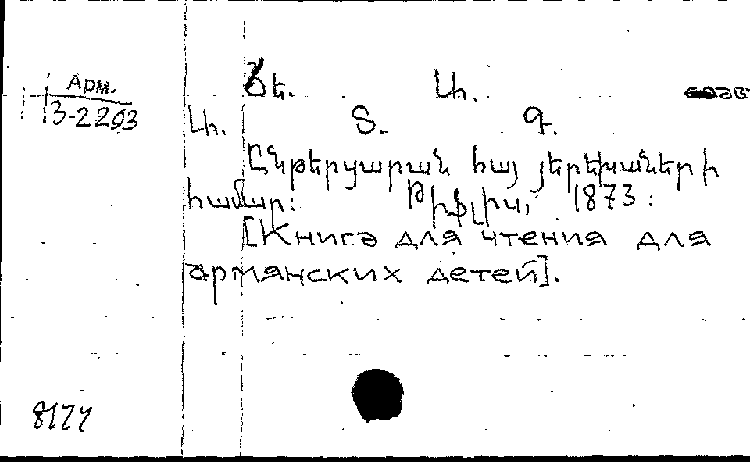 Арм.
3-2203
Ճե. Լի.
Լի. Տ. Գ.
Ընթերցարան հայ երեխաների
համար: Թիֆլիս, 1873:
[Книга для чтения для
армянских детей].
8177